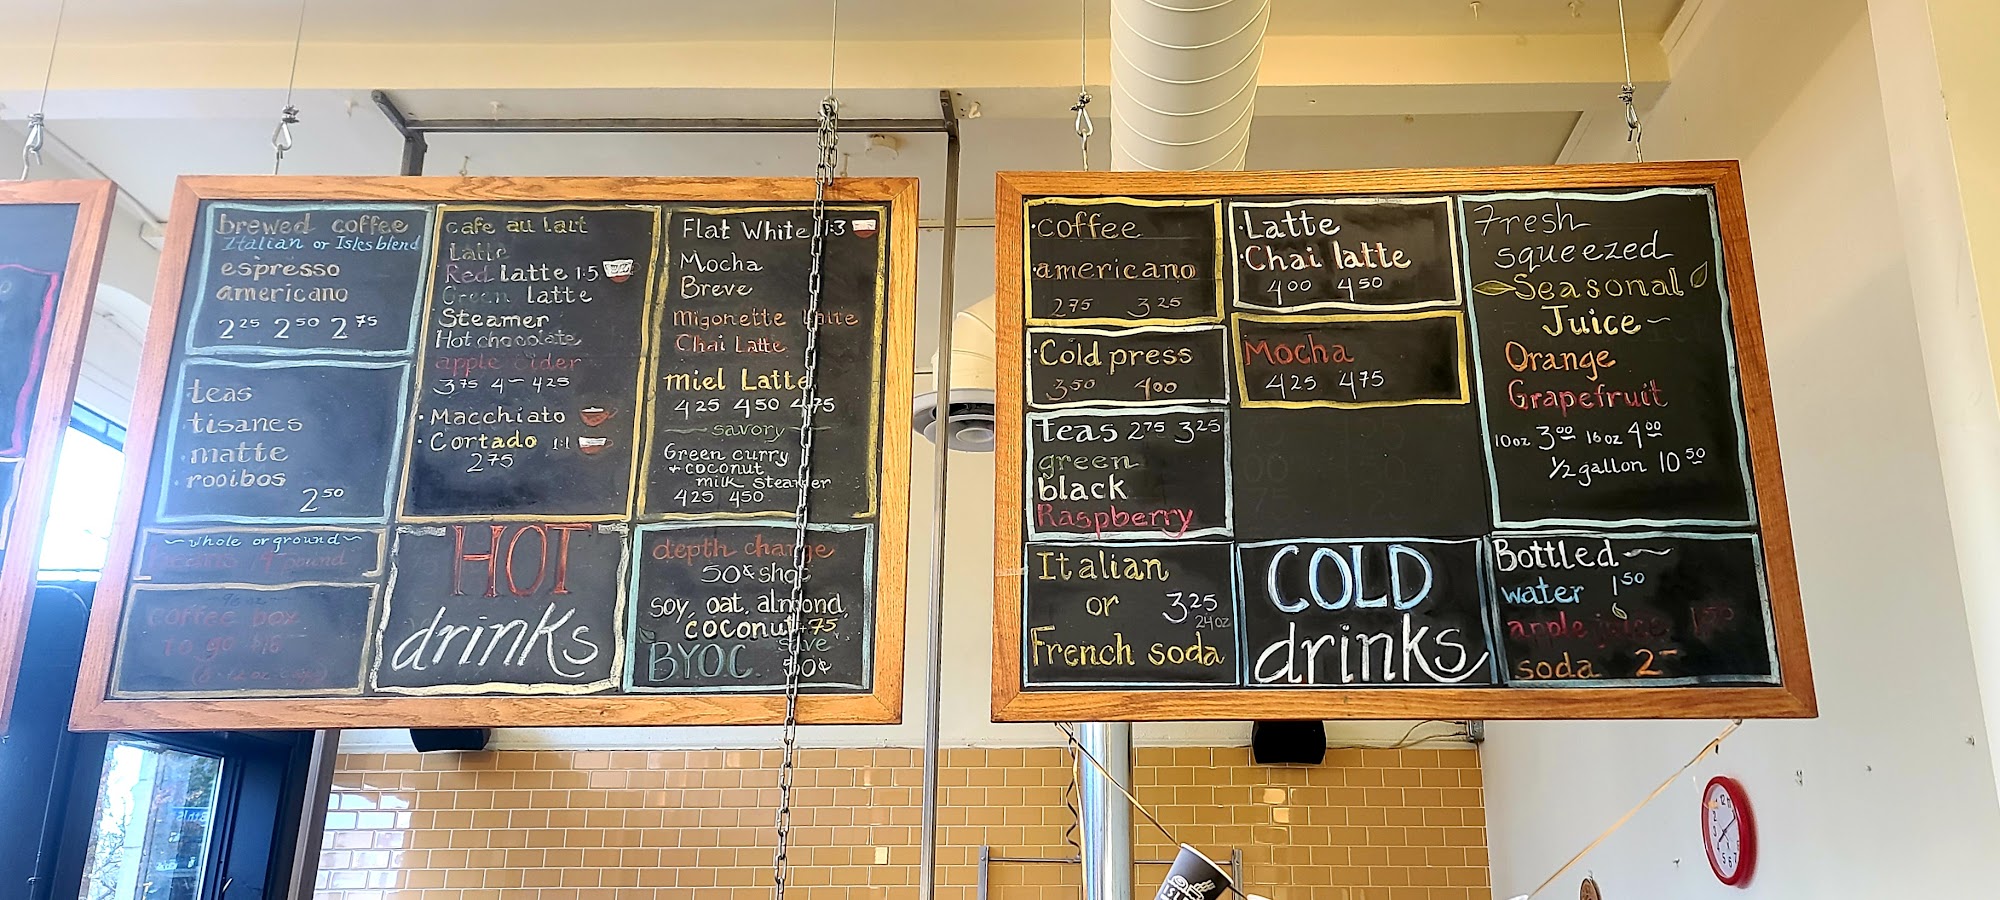 brewed coffee
Italian or Isles blend
espresso
americano
2 25 2 50 2 75
teas
tisanes
matte
rooibos
2 50
~ whole or ground ~
pound
coffee box
to go
cafe au lait
Latte
Red latte 1:5
Green latte
Steamer
Hot chocolate
apple cider
3 75 4 ~ 4 25
· Macchiato
· Cortado 1:1
2 75
HOT
drinks
Flat White 1:3
Mocha
Breve
Migonette
Chai Latte
miel Latte
4 25 4 50 4 75
savory
Green curry
+ coconut
milk steamer
4 25 4 50
depth charge
50¢ shot
soy, oat, almond,
coconut +75
BYOC save
50¢
· coffee
· americano
2 75 3 25
· Cold press
3 50 4 00
teas 2 75 3 25
green
black
Raspberry
Italian
or 3 25
24oz
French soda
· Latte
· Chai latte
4 00 4 50
Mocha
4 25 4 75
COLD
drinks
Fresh
squeezed
Seasonal
Juice ~
Orange
Grapefruit
10oz 3 00 16oz 4 00
1/2 gallon 10 50
Bottled ~
water 1 50
apple juice 1 50
soda 2 -